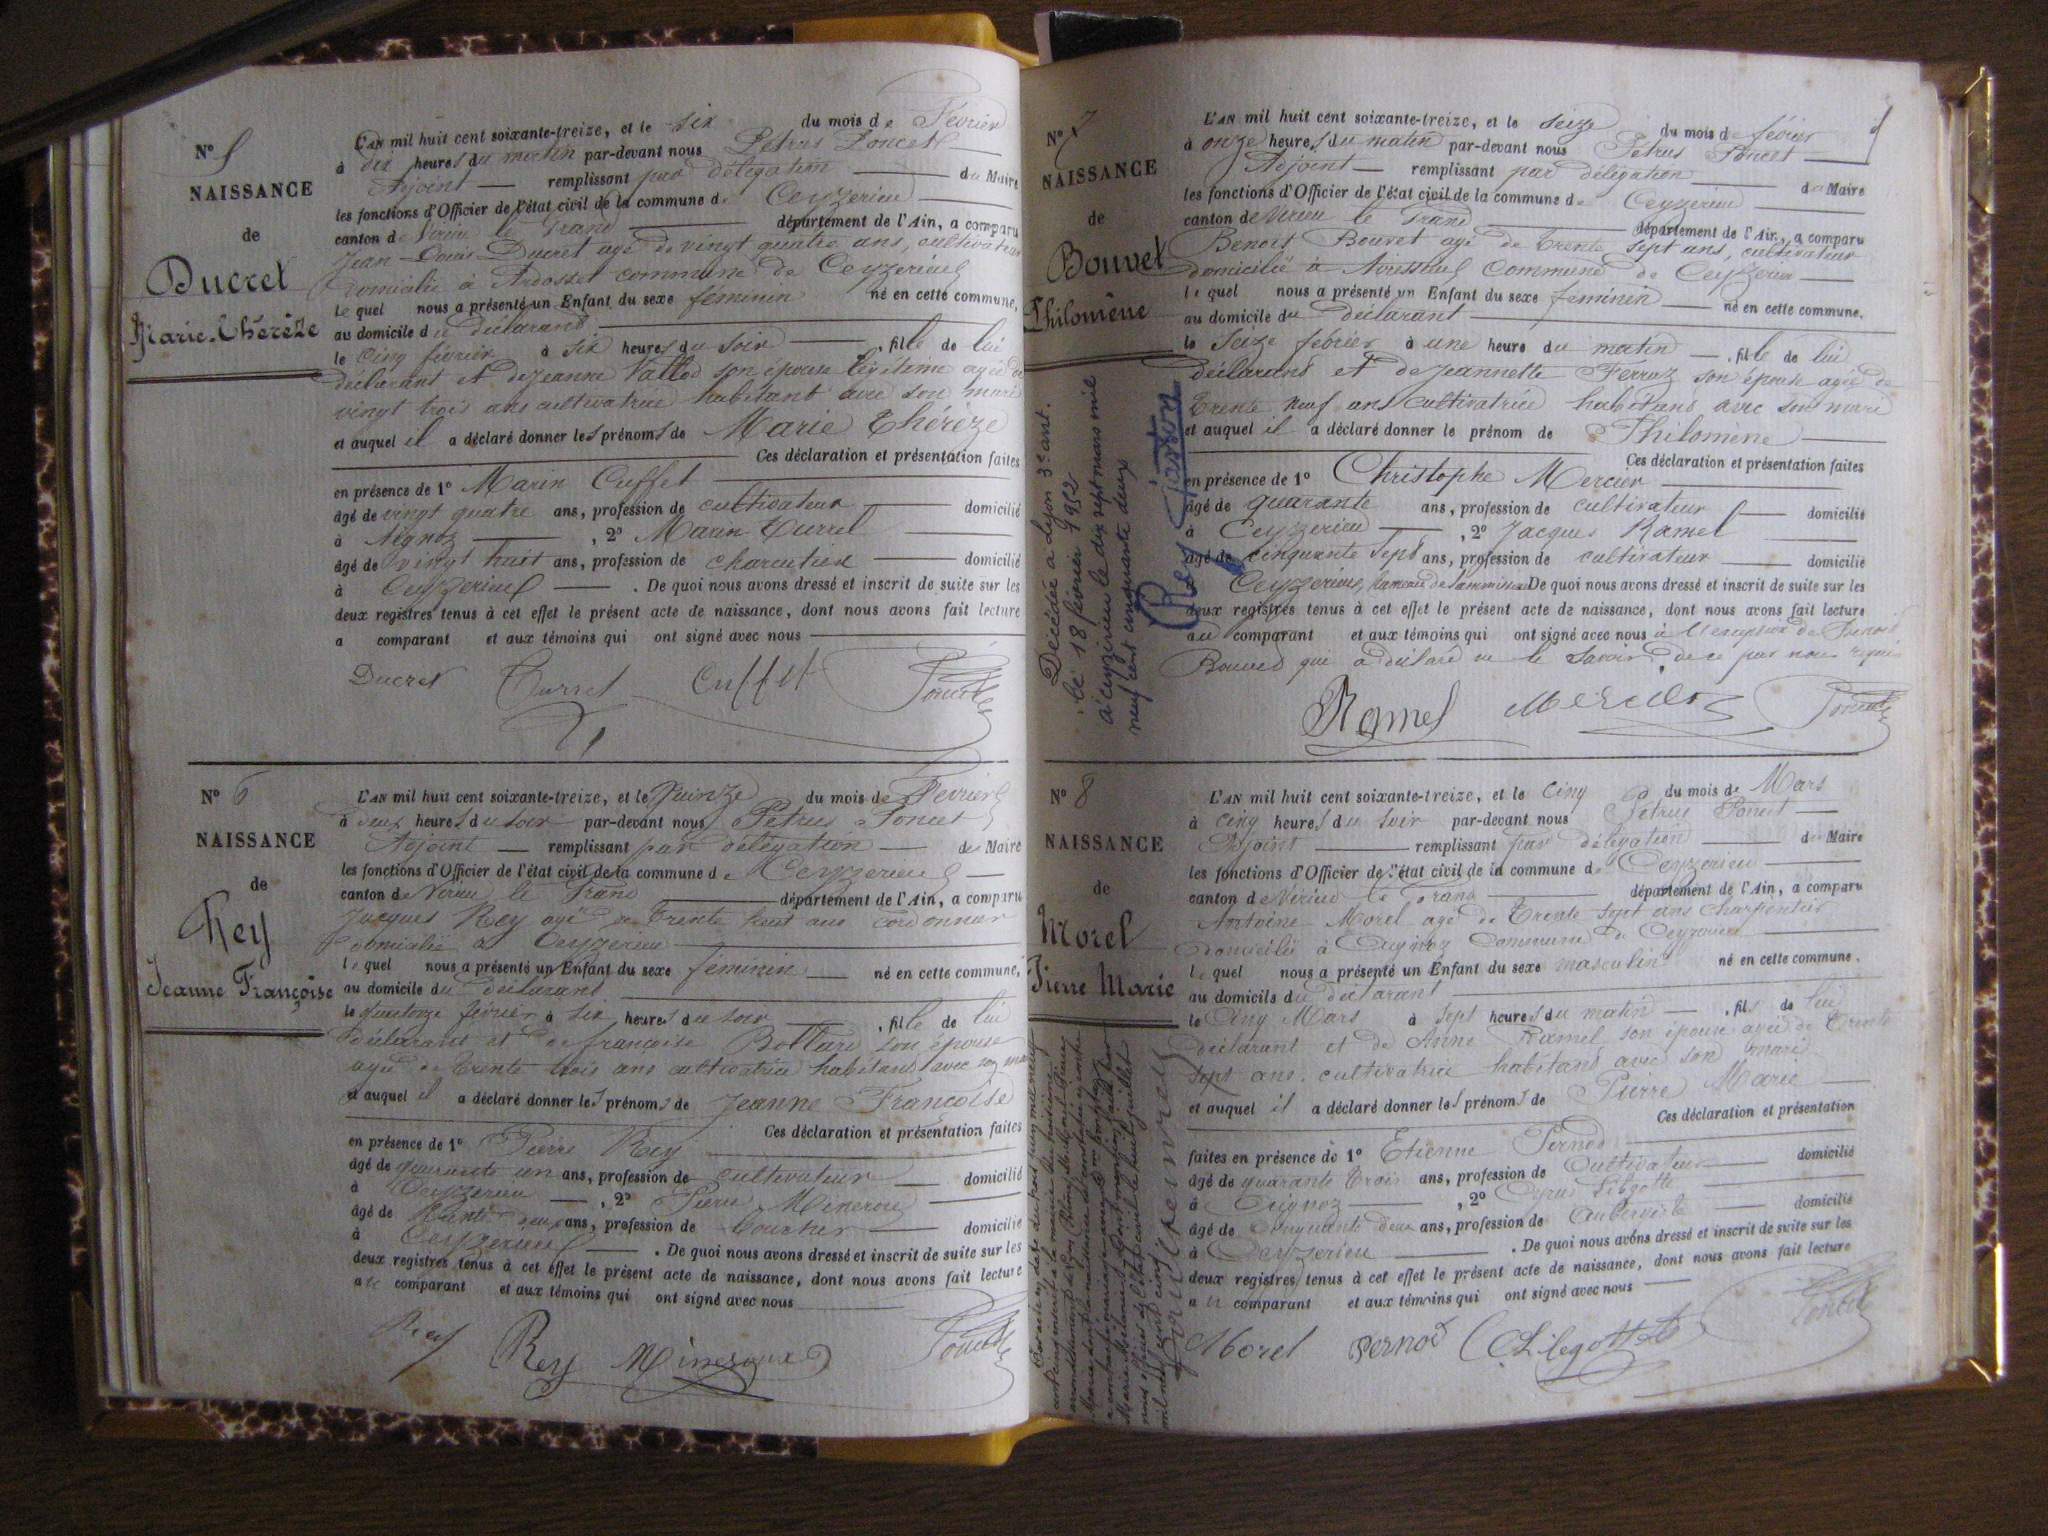 N° 5
NAISSANCE
de
Ducret
Marie-Thérèze
L'AN mil huit cent soixante-treize, et le six du mois de Février
à dix heures du matin par-devant nous Pétrus Poncet
Adjoint remplissant par délégation du Maire
les fonctions d'Officier de l'état civil de la commune de Ceyzerieu
canton de Virieu le Grand département de l'Ain, a comparu
Jean Louis Ducret agé de vingt quatre ans, cultivateur
domicilié à Ardosset commune de Ceyzerieu
le quel nous a présenté un Enfant du sexe féminin né en cette commune,
au domicile du déclarant
le cinq février à six heures du soir , fille de lui
déclarant et de Jeanne Vallod son épouse légitime agée de
vingt trois ans cultivatrice habitant avec son mari
et auquel il a déclaré donner les prénoms de Marie Thérèze
Ces déclaration et présentation faites
en présence de 1° Marin Cuffet
âgé de vingt quatre ans, profession de cultivateur domicilié
à Aignoz , 2° Marin Turrel
âgé de vingt huit ans, profession de charcutier domicilié
à Ceyzerieu . De quoi nous avons dressé et inscrit de suite sur les
deux registres tenus à cet effet le présent acte de naissance, dont nous avons fait lecture
a comparant et aux témoins qui ont signé avec nous
Ducret Turrel Cuffet Poncet
N° 6
NAISSANCE
de
Rey
Jeanne Françoise
L'AN mil huit cent soixante-treize, et le quinze du mois de Février
à deux heures du soir par-devant nous Pétrus Poncet
Adjoint remplissant par délégation des Maire
les fonctions d'Officier de l'état civil de la commune de Ceyzerieu
canton de Virieu le Grand département de l'Ain, a comparu
Jacques Rey agé de trente huit ans cordonnier
domicilié à Ceyzerieu
le quel nous a présenté un Enfant du sexe féminin né en cette commune,
au domicile du déclarant
le quatorze février à six heures du soir , fille de lui
déclarant et de françoise Bottard son épouse
agée de trente trois ans cultivatrice habitant avec son mari
et auquel il a déclaré donner les prénoms de Jeanne Françoise
Ces déclaration et présentation faites
en présence de 1° Pierre Rey
âgé de quarante un ans, profession de cultivateur domicilié
à Ceyzerieu , 2° Pierre
âgé de trente deux ans, profession de domicilié
à Ceyzerieu . De quoi nous avons dressé et inscrit de suite sur les
deux registres tenus à cet effet le présent acte de naissance, dont nous avons fait lecture
au comparant et aux témoins qui ont signé avec nous
Rey Rey Poncet
N° 7
NAISSANCE
de
Bouvet
Philomène
Décédée à Lyon 3e arrt.
le 18 février 1952
à Ceyzerieu le dix sept mars mil
neuf cent cinquante deux
L'AN mil huit cent soixante-treize, et le seize du mois de février
à onze heures du matin par-devant nous Pétrus Poncet
Adjoint remplissant par délégation du Maire
les fonctions d'Officier de l'état civil de la commune de Ceyzerieu
canton de Virieu le Grand département de l'Ain, a comparu
Benoit Bouvet agé de trente sept ans, cultivateur
domicilié à Avrissieu Commune de Ceyzerieu
le quel nous a présenté un Enfant du sexe féminin né en cette commune.
au domicile du déclarant
le Seize février à une heure du matin , fille de lui
déclarant et de Jeannette Ferroz son épouse agée de
trente neuf ans cultivatrice habitant avec son mari
et auquel il a déclaré donner le prénom de Philomène
Ces déclaration et présentation faites
en présence de 1° Christophe Mercier
âgé de quarante ans, profession de cultivateur domicilié
à Ceyzerieu , 2° Jacques Ramel
âgé de cinquante sept ans, profession de cultivateur domicilié
à Ceyzerieu, hameau de De quoi nous avons dressé et inscrit de suite sur les
deux registres tenus à cet effet le présent acte de naissance, dont nous avons fait lecture
au comparant et aux témoins qui ont signé avec nous à l'exception de Benoit
Bouvet qui a déclaré ne le savoir, de ce par nous requis
Ramel Mercier Poncet
N° 8
NAISSANCE
de
Morel
Pierre Marie
L'AN mil huit cent soixante-treize, et le cinq du mois de Mars
à cinq heures du soir par-devant nous Pétrus Poncet
Adjoint remplissant par délégation du Maire
les fonctions d'Officier de l'état civil de la commune de Ceyzerieu
canton de Virieu le Grand département de l'Ain, a comparu
Antoine Morel agé de trente sept ans charpentier
domicilié à Aignoz Commune de Ceyzerieu
le quel nous a présenté un Enfant du sexe masculin né en cette commune.
au domicile du déclarant
le Cinq Mars à sept heures du matin , fils de lui
déclarant et de Anne Ramel son épouse agée de trente
sept ans, cultivatrice habitant avec son mari
et auquel il a déclaré donner les prénoms de Pierre Marie
Ces déclaration et présentation
faites en présence de 1° Etienne Pernod
âgé de quarante trois ans, profession de Cultivateur domicilié
à Aignoz , 2° Cyrus
âgé de Cinquante deux ans, profession de Aubergiste domicilié
à Ceyzerieu . De quoi nous avons dressé et inscrit de suite sur les
deux registres tenus à cet effet le présent acte de naissance, dont nous avons fait lecture
au comparant et aux témoins qui ont signé avec nous
Morel Pernod Poncet